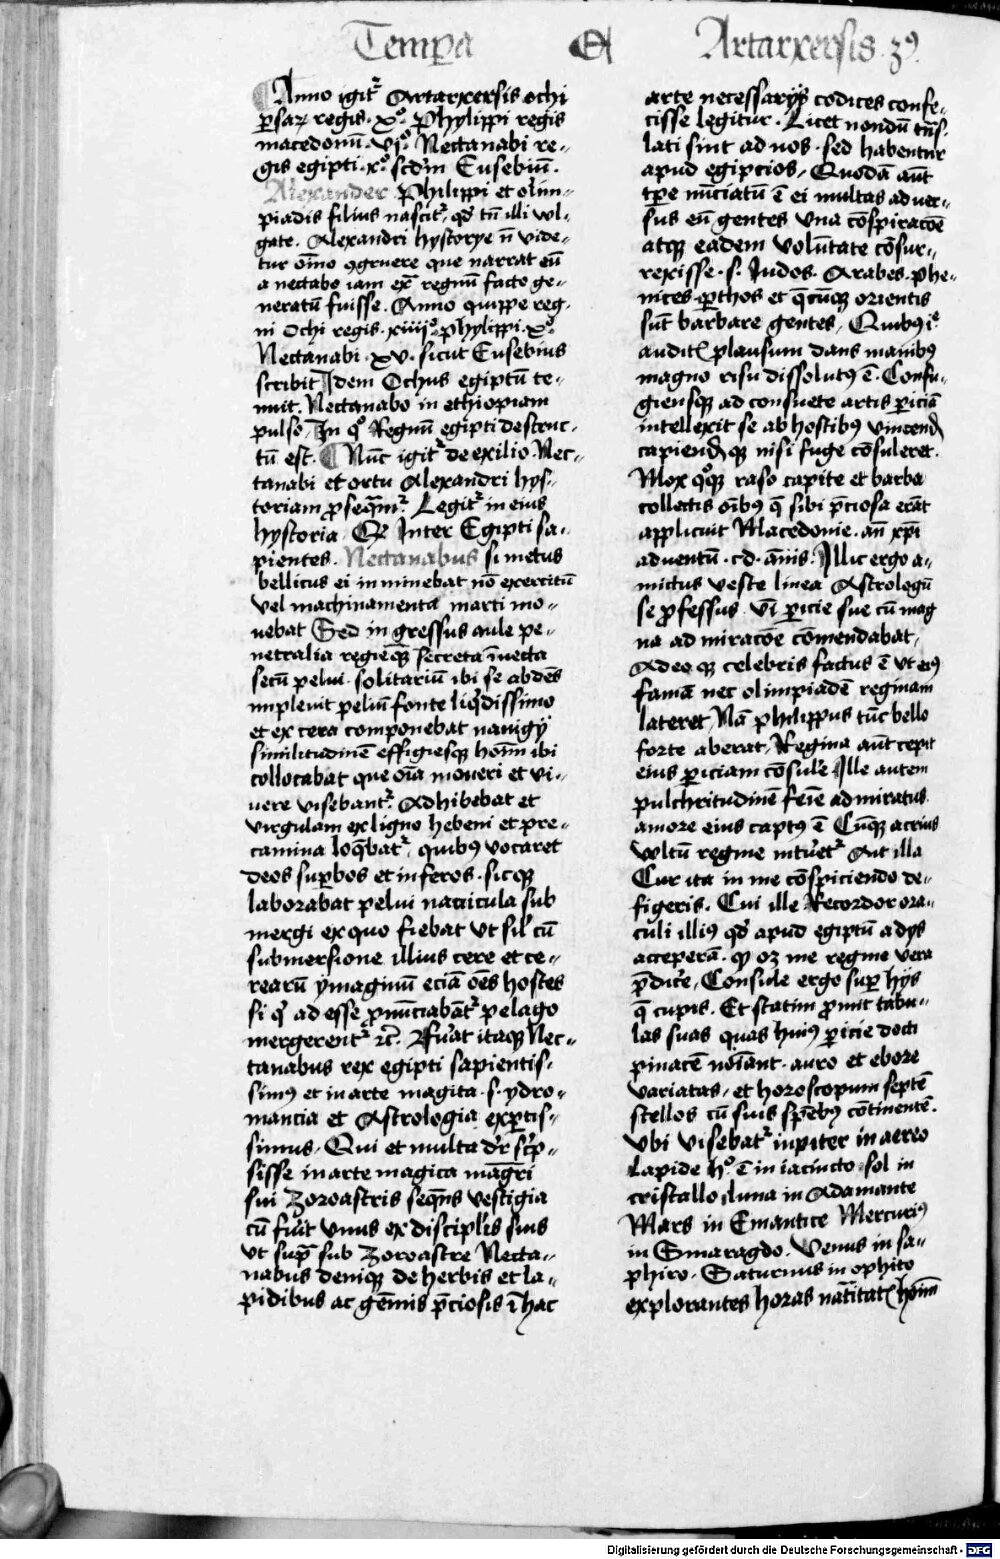 Temp̄a Et Artarxersis 3⁹.
Anno igit᷑ Artarxersis ochi
ꝑsaꝝ regis. xº. Phylippi regis
macedonū. vjº. Nectanabi re-
gis egipti. xº. scd̄m Eusebiū.
Alexander Philippi et olim-
piadis filius nascit᷑, qd̄ tn̄ illi vol-
gate. Alexandri hystorye nō vide-
tur oīno ꝯgruere que narrat eū
a nectabo iam ex regnū facto ge-
neratū fuisse. Anno quippe reg-
ni Ochi regis. xiiijº. phylippi. xº.
Nectanabi. xv. sicut Eusebius
scribit Idem Ochus egiptū te-
nuit. Nectanabo in ethiopiam
pulso, In qº Regnū egipti destruc-
tū est. Nūc igit᷑ de exilio. Nec-
tanabi et ortu Alexandri hys-
toriam ꝓseq̄m᷑. Legit᷑ in eius
hystoria. Qꝫ Inter Egipti sa-
pientes. Nectanabus si metus
bellicus ei inminebat nō exercitū
vel machinamenta marti mo-
uebat Sed in gressus aule pe-
netralia regieqꝫ secreta īuecta
secū pelui. solitariū ibi se abdēs
impleuit peluī fonte liq̄dissimo
et ex cera componebat nauigij
similitudinē effigiesqꝫ hoīm ibi
collocabat que oīa moueri et vi-
uere visebant᷑. Adhibebat et
virgulam ex ligno hebeni et pre-
camina loq̄bat᷑, quibꝰ vocaret
deos suꝑbos et inferos. sicqꝫ
laborabat pelui nauicula sub
mergi ex quo fiebat vt sil̄ cū
submersione illius cere et ce-
rearū ymaginū eciā oēs hostes
si q̇ ad esse p̄nūciabāt᷑ pelago
mergerent᷑ ⁊c̄. Fuīat itaqꝫ Nec-
tanabus rex egipti sapientis-
simꝰ et in arte magita. s. ydro-
mancia et Astrologia exꝑtis-
simus. Qui et multa dr̄ sc̄p-
sisse in arte magica magr̄i
sui Zoroastris seqn̄s vestigia
cū fuīt vnus ex discipl̄is suis
vt supͣ sub Zoroastre Necta-
nabus deniqꝫ de herbis et la-
pidibus ac gēmis p̄ciosis ī hac
arte necessarijs codices confe-
cisse legitur. Licet nondū tn̄s-
lati sint ad nos. sed habentur
apud egipcios, Quodā aūt
tꝑe nūciatū ē ei multas aduer-
sus eū gentes vna cōspiracōe
atqꝫ eadem volūtate cōsur-
rexisse. s. Indos. Arabes. phe-
nices. ꝑthos et q̄cūqꝫ orientis
sūt barbare gentes, Quibꝰ iº
auditꝭ plausum dans manibꝰ
magno risu dissolutꝰ ē. Confu-
giensqꝫ ad consuete artis ꝑiciā
intellexit se ab hostibꝰ vincend̄
capiend̄ qꝫ nisi fuge cōsuleret.
Mox qºqꝫ raso capite et barba
collectis oībꝰ q̄ sibi p̄ciosa erāt
applicuit Macedonie. an̄ xp̄i
aduentū. cd. ānis. Illic ergo a-
mictus veste linea Astrologū
se ꝓfessus. vī ꝑicie sue cū mag
na ad miracōe cōmendabat,
Adeo qꝫ celebris factus ē vt eiꝰ
famā nec olimpiadē reginam
lateret, Nā philippus tūc bello
forte aberat, Regina aūt cepit
eius ꝑiciam cōsulẽ Ille autem
pulchritudinē feīe admiratus
amore eius captꝰ ē Cūqꝫ acrius
vultū regine intuet᷑ Ait illa
Cur ita in me cōspiciendo de-
figeris. Cui ille Recordor ora-
culi illiꝰ qd̄ apud egiptū a dys
acceperā. qꝫ oꝫ me regine vera
p̄dicẽ, Consule ergo suꝑ hijs
q̄ cupis. Et statim ꝓmit tabu-
las suas quas huiꝰ ꝑicie docti
pinacē noīant. auro et ebore
variatas, et horoscopum septē
stellos cū suis spēbꝰ cōtinentē.
vbi visebat᷑ iupiter in aereo
Lapide hº ē in iacincto. sol in
cristallo, luna in Adamante
Mars in Emantice Mercuriꝰ
in Smaragdo. Venus in sa-
phiro. Saturnus in ophito
explorantes horas natītatꝭ hoīm
Digitalisierung gefördert durch die Deutsche Forschungsgemeinschaft - DFG